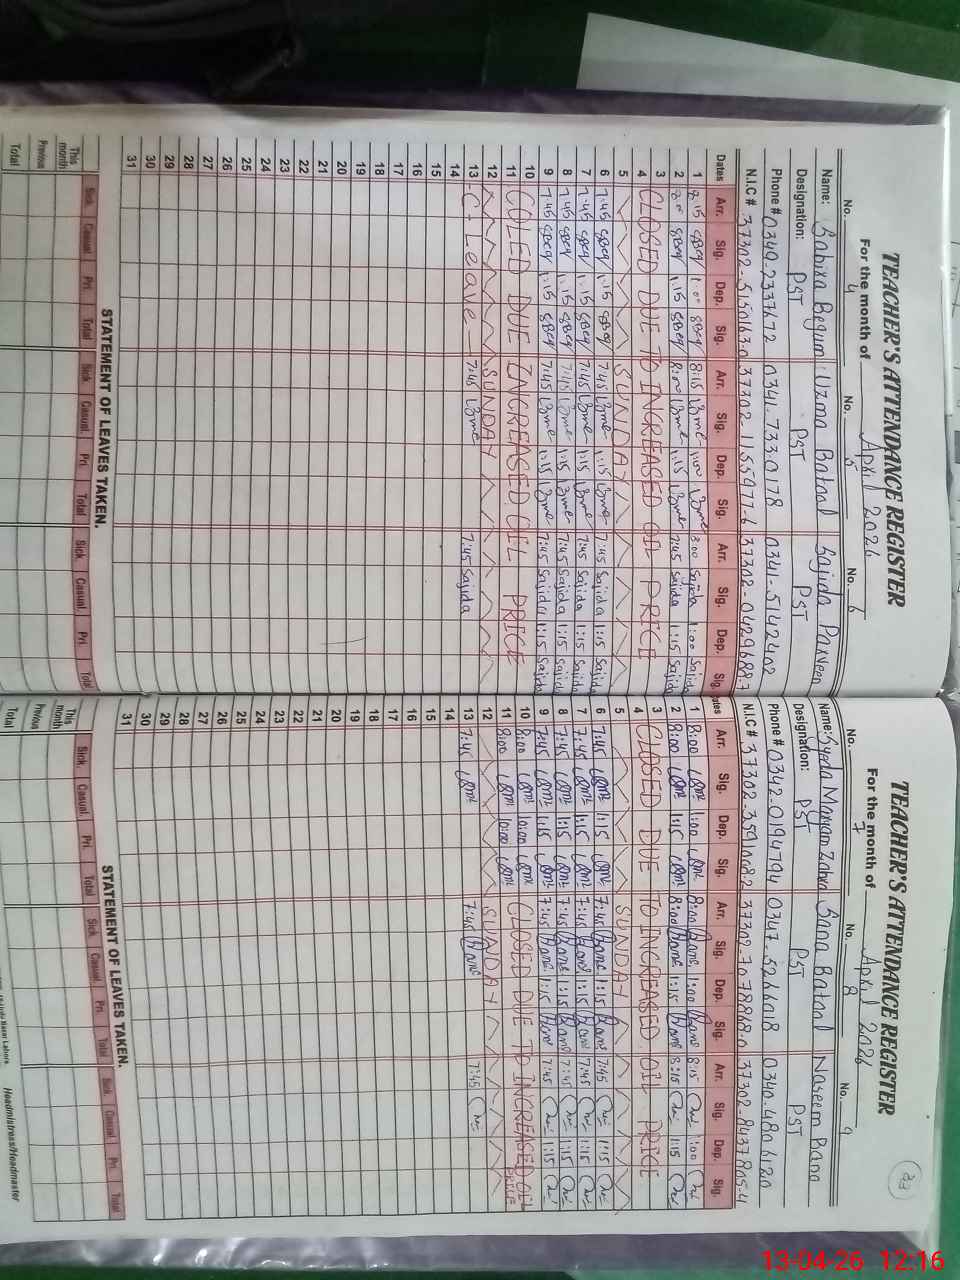 TEACHER'S ATTENDANCE REGISTER
For the month of April 2026
No. 4 No. 5 No. 6
Name: Sabira Begum Uzma Batool Sajida Parveen
Designation: PST PST PST
Phone # 0340-2337672 0341-7330178 0341-5142402
N.I.C # 37302-5150163-0 37302-1155977-6 37302-0429688-7
Dates Arr. Sig. Dep. Sig. Arr. Sig. Dep. Sig. Arr. Sig. Dep. Sig.
1 8:15 SBeg 1:00 SBeg 8:15 1:00 8:00 Sajida 1:00 Sajida
2 8:00 SBeg 1:15 SBeg 8:00 1:15 7:45 Sajida 1:15 Sajida
3
4 CLOSED DUE TO INCREASED OIL PRICE
5 SUNDAY
6 7:45 SBeg 1:15 SBeg 7:45 1:15 7:45 Sajida 1:15 Sajida
7 7:45 SBeg 1:15 SBeg 7:45 1:15 7:45 Sajida 1:15 Sajida
8 7:45 SBeg 1:15 SBeg 7:45 1:15 7:45 Sajida 1:15 Sajida
9 7:45 SBeg 1:15 SBeg 7:45 1:15 7:45 Sajida 1:15 Sajida
10
11 COLED DUE INCREASED OIL PRICE
12 SUNDAY
13 C-Leave 7:45 7:45 Sajida
14
15
16
17
18
19
20
21
22
23
24
25
26
27
28
29
30
31
STATEMENT OF LEAVES TAKEN.
Sick. Casual. Pri. Total Sick. Casual. Pri. Total Sick. Casual. Pri. Total
This month
Previous
Total
33
TEACHER'S ATTENDANCE REGISTER
For the month of April 2026
No. 7 No. 8 No. 9
Name: Syeda Maryam Zahra Sana Batool Naseem Bano
Designation: PST PST PST
Phone # 0342-0194794 0347-5266018 0340-4806120
N.I.C # 37302-3591008-2 37302-7078868-0 37302-8437805-4
Dates Arr. Sig. Dep. Sig. Arr. Sig. Dep. Sig. Arr. Sig. Dep. Sig.
1 8:00 1:00 8:00 1:00 8:15 1:00
2 8:00 1:15 8:00 1:15 8:15 1:15
3
4 CLOSED DUE TO INCREASED OIL PRICE
5 SUNDAY
6 7:45 1:15 7:45 1:15 7:45 1:15
7 7:45 1:15 7:45 1:15 7:45 1:15
8 7:45 1:15 7:45 1:15 7:45 1:15
9 7:45 1:15 7:45 1:15 7:45 1:15
10 8:00 10:00 CLOSED DUE TO INCREASED OIL
11 8:00 10:00 PRICE
12 SUNDAY
13 7:45 7:45 7:45
14
15
16
17
18
19
20
21
22
23
24
25
26
27
28
29
30
31
STATEMENT OF LEAVES TAKEN.
Sick. Casual. Pri. Total Sick. Casual. Pri. Total Sick. Casual. Pri. Total
This month
Previous
Total
Urdu Bazar Lahore.
Headmistress/Headmaster
13-04-26 12:16